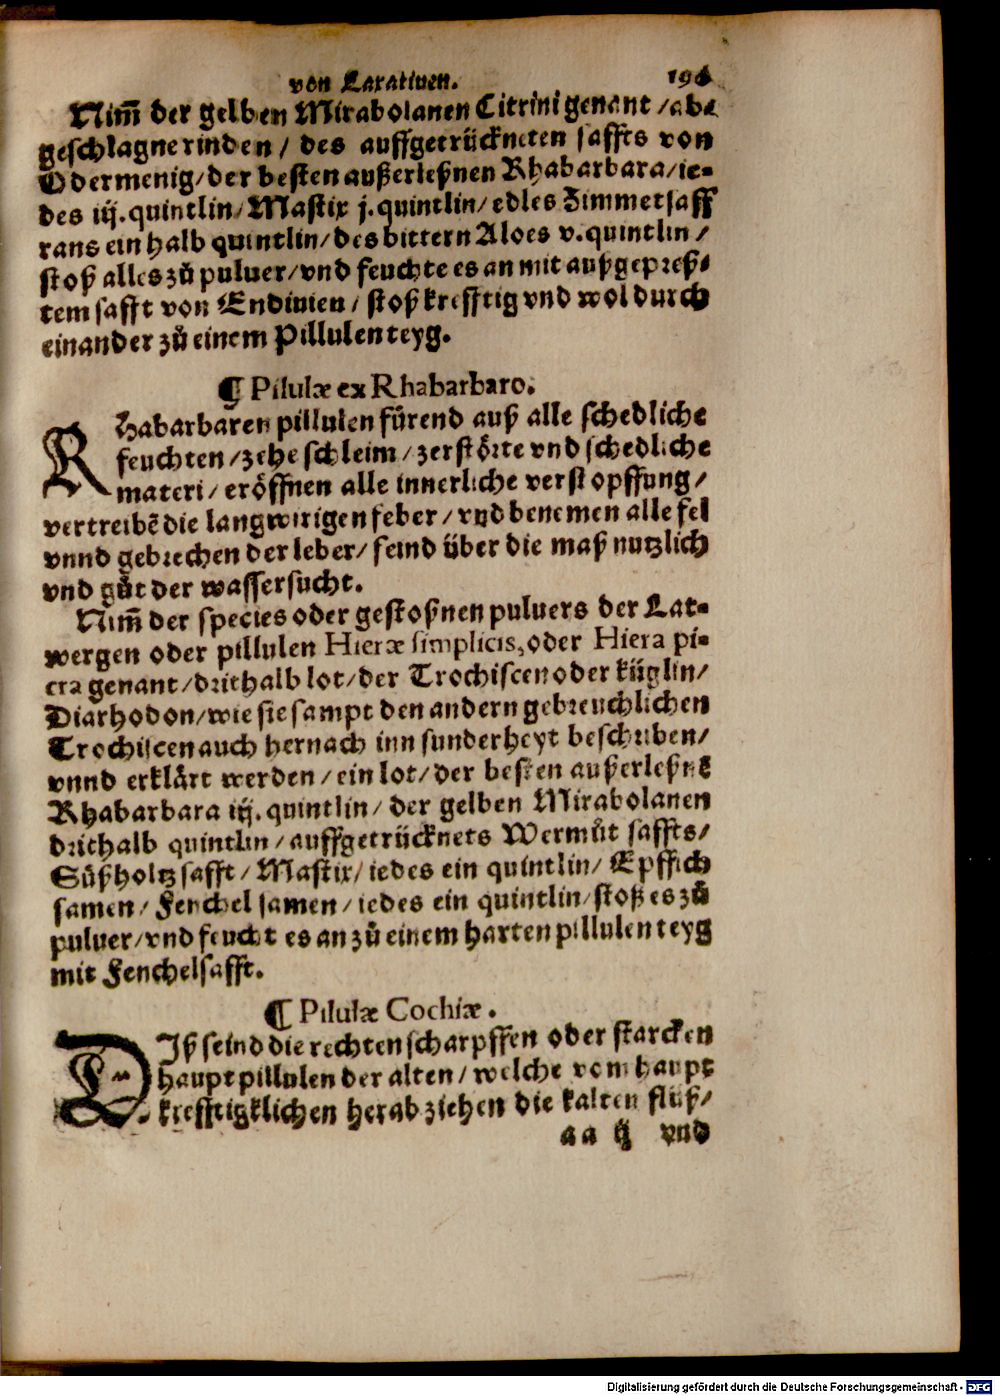 von Laxativen.
Nim̃ der gelben Mirabolanen Citrini genant / abe
geschlagne rinden / des auffgetrückneten saffts von
Odermenig / der besten außerleßnen Rhabarbara / ie-
des iij. quintlin / Mastix j. quintlin / edles Zimmetsaff
rans ein halb quintlin / des bittern Aloes v. quintlin /
stoß alles zů puluer / vnd feuchte es an mit außgepreß-
tem safft von Endiuien / stoß krefftig vnd wol durch
einander zů einem Pillulen teyg.
¶ Pilulæ ex Rhabarbaro.
Rhabarbaren pillulen fürend auß alle schedliche
feuchten / zehe schleim / zerstörte vnd schedliche
materi / eröffnen alle innerliche verstopffung /
vertreibẽ die langwirigen feber / vnd benemen alle fel
vnnd gebrechen der leber / seind über die maß nutzlich
vnd gůt der wassersucht.
Nim̃ der species oder gestoßnen puluers der Lat-
wergen oder pillulen Hieræ simplicis, oder Hiera pi-
cra genant / drithalb lot / der Trochiscen oder küglin /
Diarhodon / wie sie sampt den andern gebreuchlichen
Trochiscen auch hernach inn sunderheyt beschriben /
vnnd erklärt werden / ein lot / der besten außerleßnẽ
Rhabarbara iij. quintlin / der gelben Mirabolanen
drithalb quintlin / auffgetrücknets Wermůt saffts /
Süßholtz safft / Mastix / iedes ein quintlin / Epffich
samen / Fenchel samen / iedes ein quintlin / stoß es zů
puluer / vnd feucht es an zů einem harten pillulen teyg
mit Fenchelsafft.
¶ Pilulæ Cochiæ.
DIß seind die rechten scharpffen oder starcken
haupt pillulen der alten / welche vom haupt
krefftigklichen herab ziehen die kalten flüß /
aa ij vnd
Digitalisierung gefördert durch die Deutsche Forschungsgemeinschaft - DFG